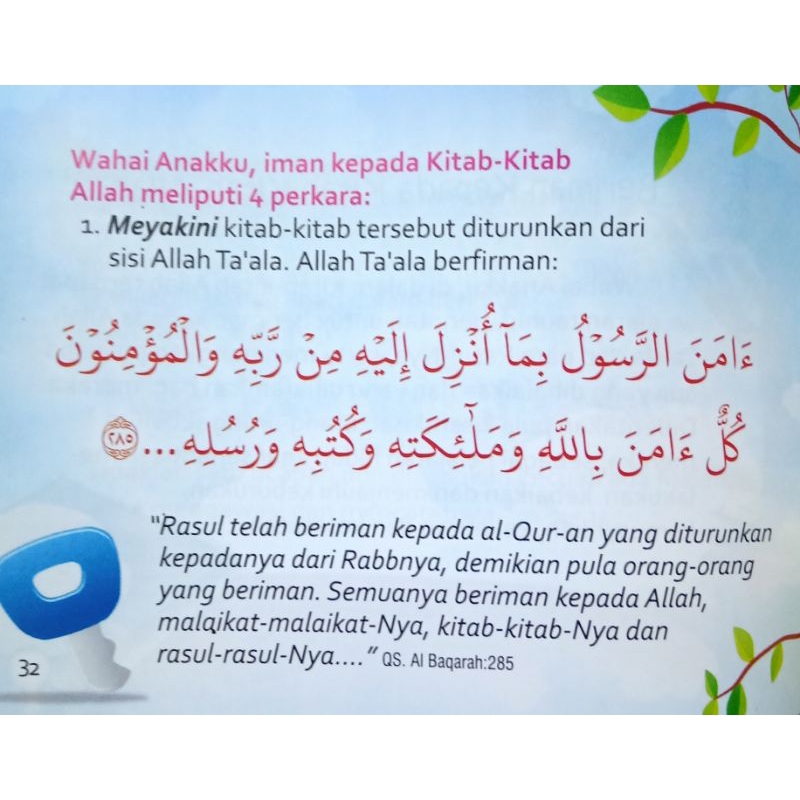 Wahai Anakku, iman kepada Kitab-Kitab
Allah meliputi 4 perkara:
1. Meyakini kitab-kitab tersebut diturunkan dari
sisi Allah Ta'ala. Allah Ta'ala berfirman:
ءَامَنَ الرَّسُوْلُ بِمَآ أُنْزِلَ إِلَيْهِ مِنْ رَّبِّهِ وَالْمُؤْمِنُوْنَ
كُلٌّ ءَامَنَ بِاللَّهِ وَمَلَٰئِكَتِهِ وَكُتُبِهِ وَرُسُلِهِ ... ٢٨٥
"Rasul telah beriman kepada al-Qur-an yang diturunkan
kepadanya dari Rabbnya, demikian pula orang-orang
yang beriman. Semuanya beriman kepada Allah,
malaikat-malaikat-Nya, kitab-kitab-Nya dan
rasul-rasul-Nya...." QS. Al Baqarah:285
32